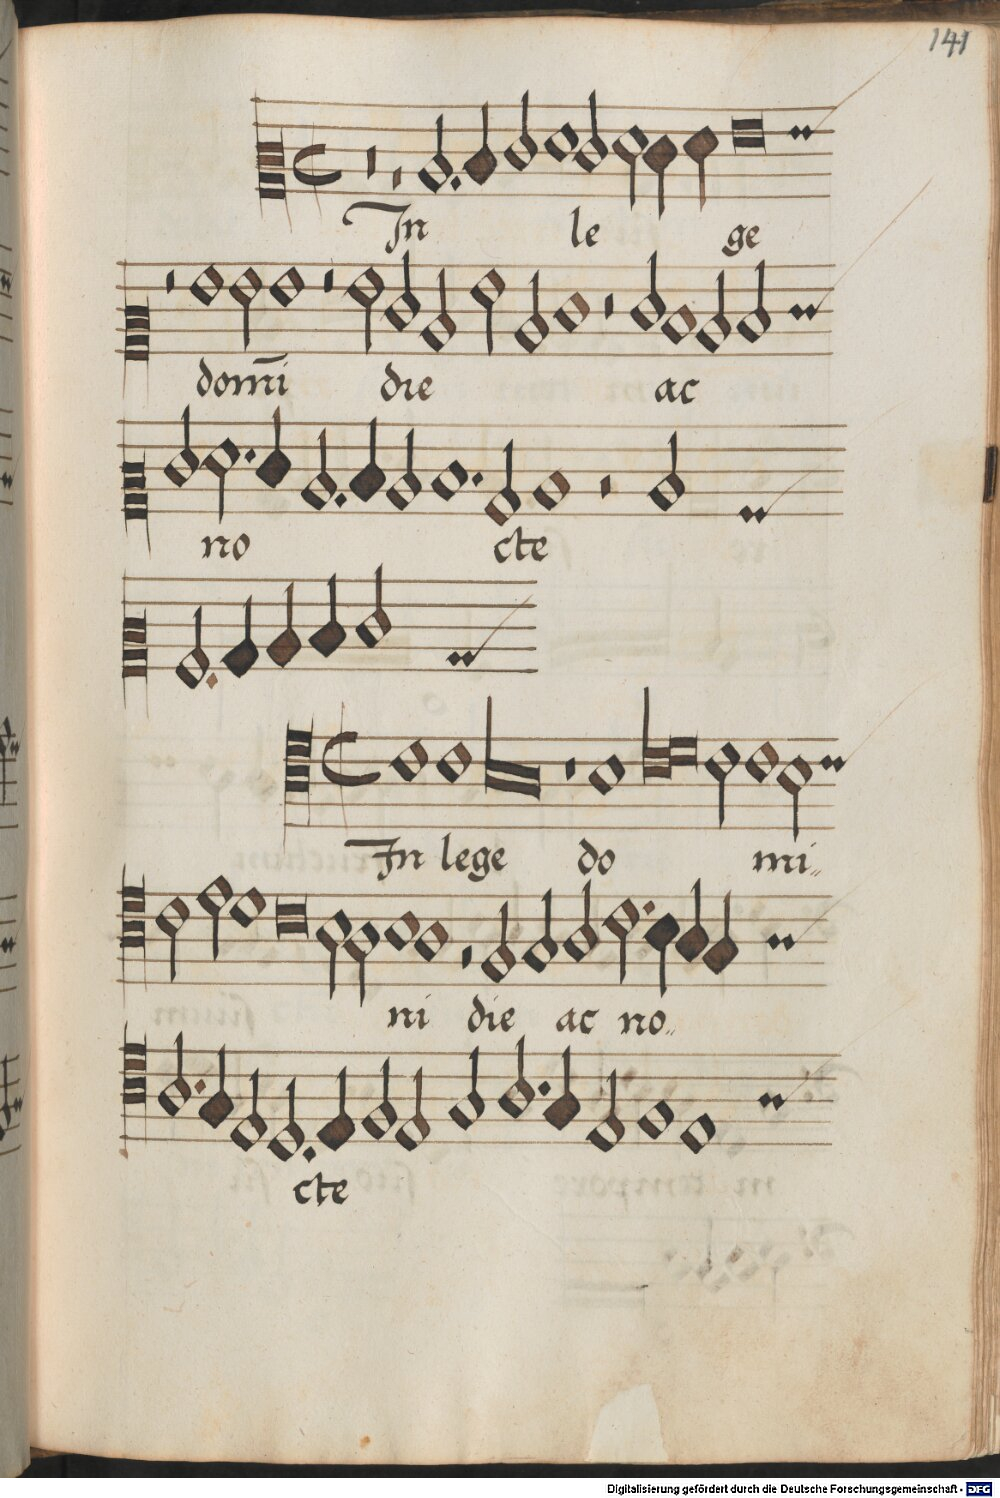 141
In le ge
domĩ die ac
no cte
In lege do mi
ni die ac no
cte
Digitalisierung gefördert durch die Deutsche Forschungsgemeinschaft - DFG